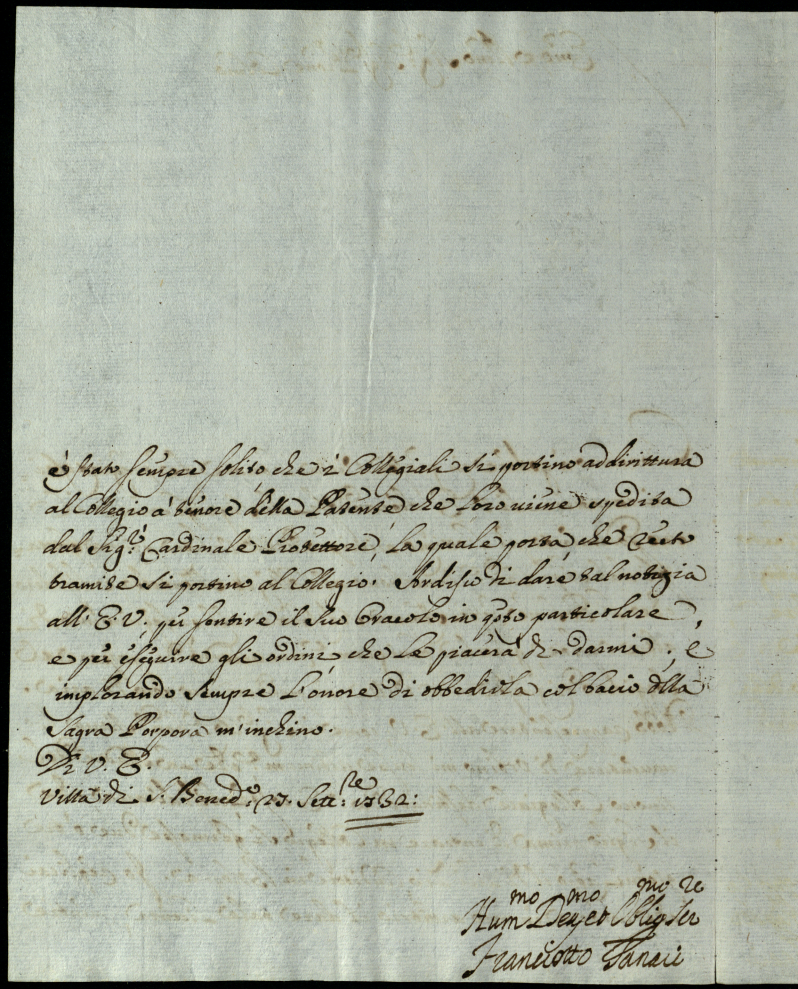 è stato sempre solito che i Collegiali si portino addirittura
al Collegio à tenore della Patente che loro viene spedita
dal Sig.r Cardinale Protettore, la quale porta, che recto
tramite si portino al Collegio. Ardisco di dare tal notizia
all' E. V. per sentire il suo Oracolo in qsto particolare,
e per eseguire gli ordini, che le piacerà di darmi; e
implorando sempre l'onore di obbedirla col bacio della
Sagra Porpora m'inchino.
Di V. E.
Villa di S. Bened.o 23. Sett.re 1732:
Hum.mo Dev.mo et Oblig.mo Ser.re
Franciotto Tanari